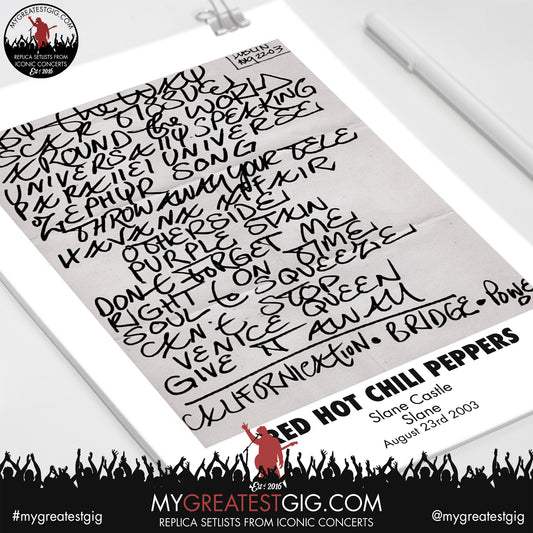 MYGREATESTGIG.COM
REPLICA SETLISTS FROM
ICONIC CONCERTS
Est: 2016
DUBLIN
Aug 2203
BY the WAY
SCAR TISSUE
AROUND the WORLD
UNIVERSALLY SPEAKING
PARALLEL UNIVERSE
ZEPHYR SONG
THROW AWAY YOUR TELE
HAVANA AFFAIR
OTHERSIDE
PURPLE STAIN
DON't FORGET ME
RIGHT ON TIME
SOUL to SQUEEZE
CAN't STOP
VENICE QUEEN
GIVE IT AWAY
CALIFORNICATION • BRIDGE • Powe
RED HOT CHILI PEPPERS
Slane Castle
Slane
August 23rd 2003
Est: 2016
#mygreatestgig
MYGREATESTGIG.COM
REPLICA SETLISTS FROM ICONIC CONCERTS
@mygreatestgig